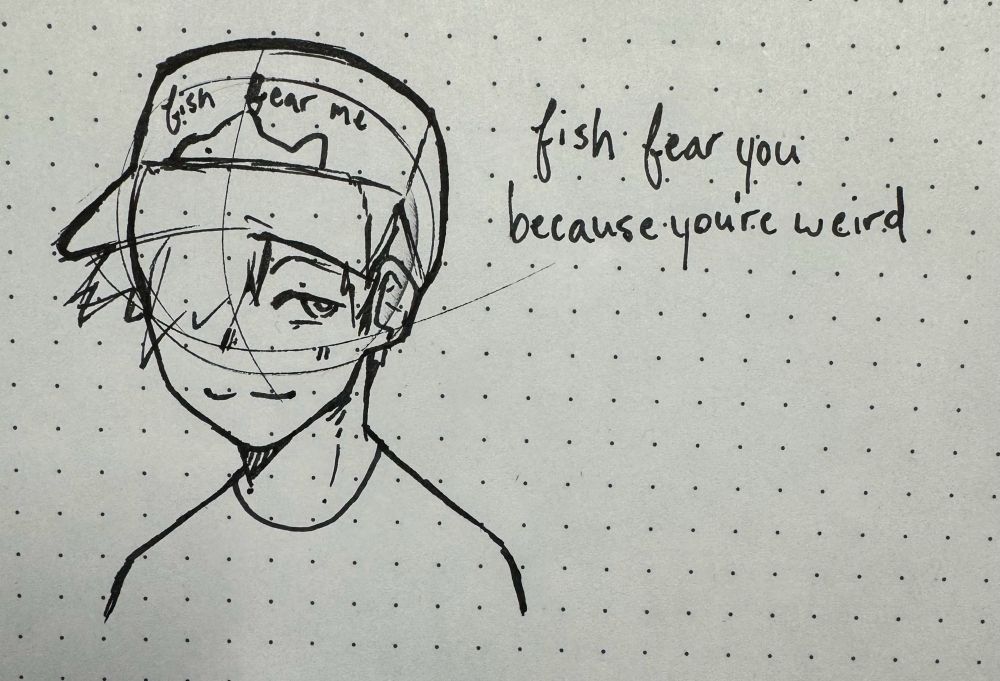 fish fear me
fish fear you
because you're weird